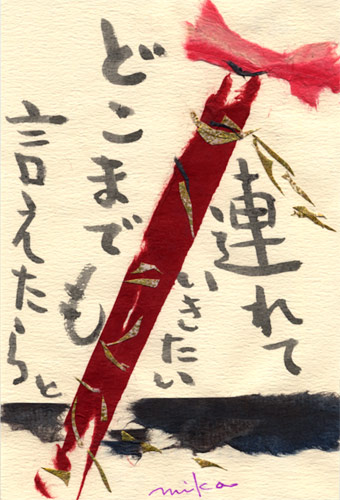 連れて
いきたい
どこまでも
言えたらと
mika